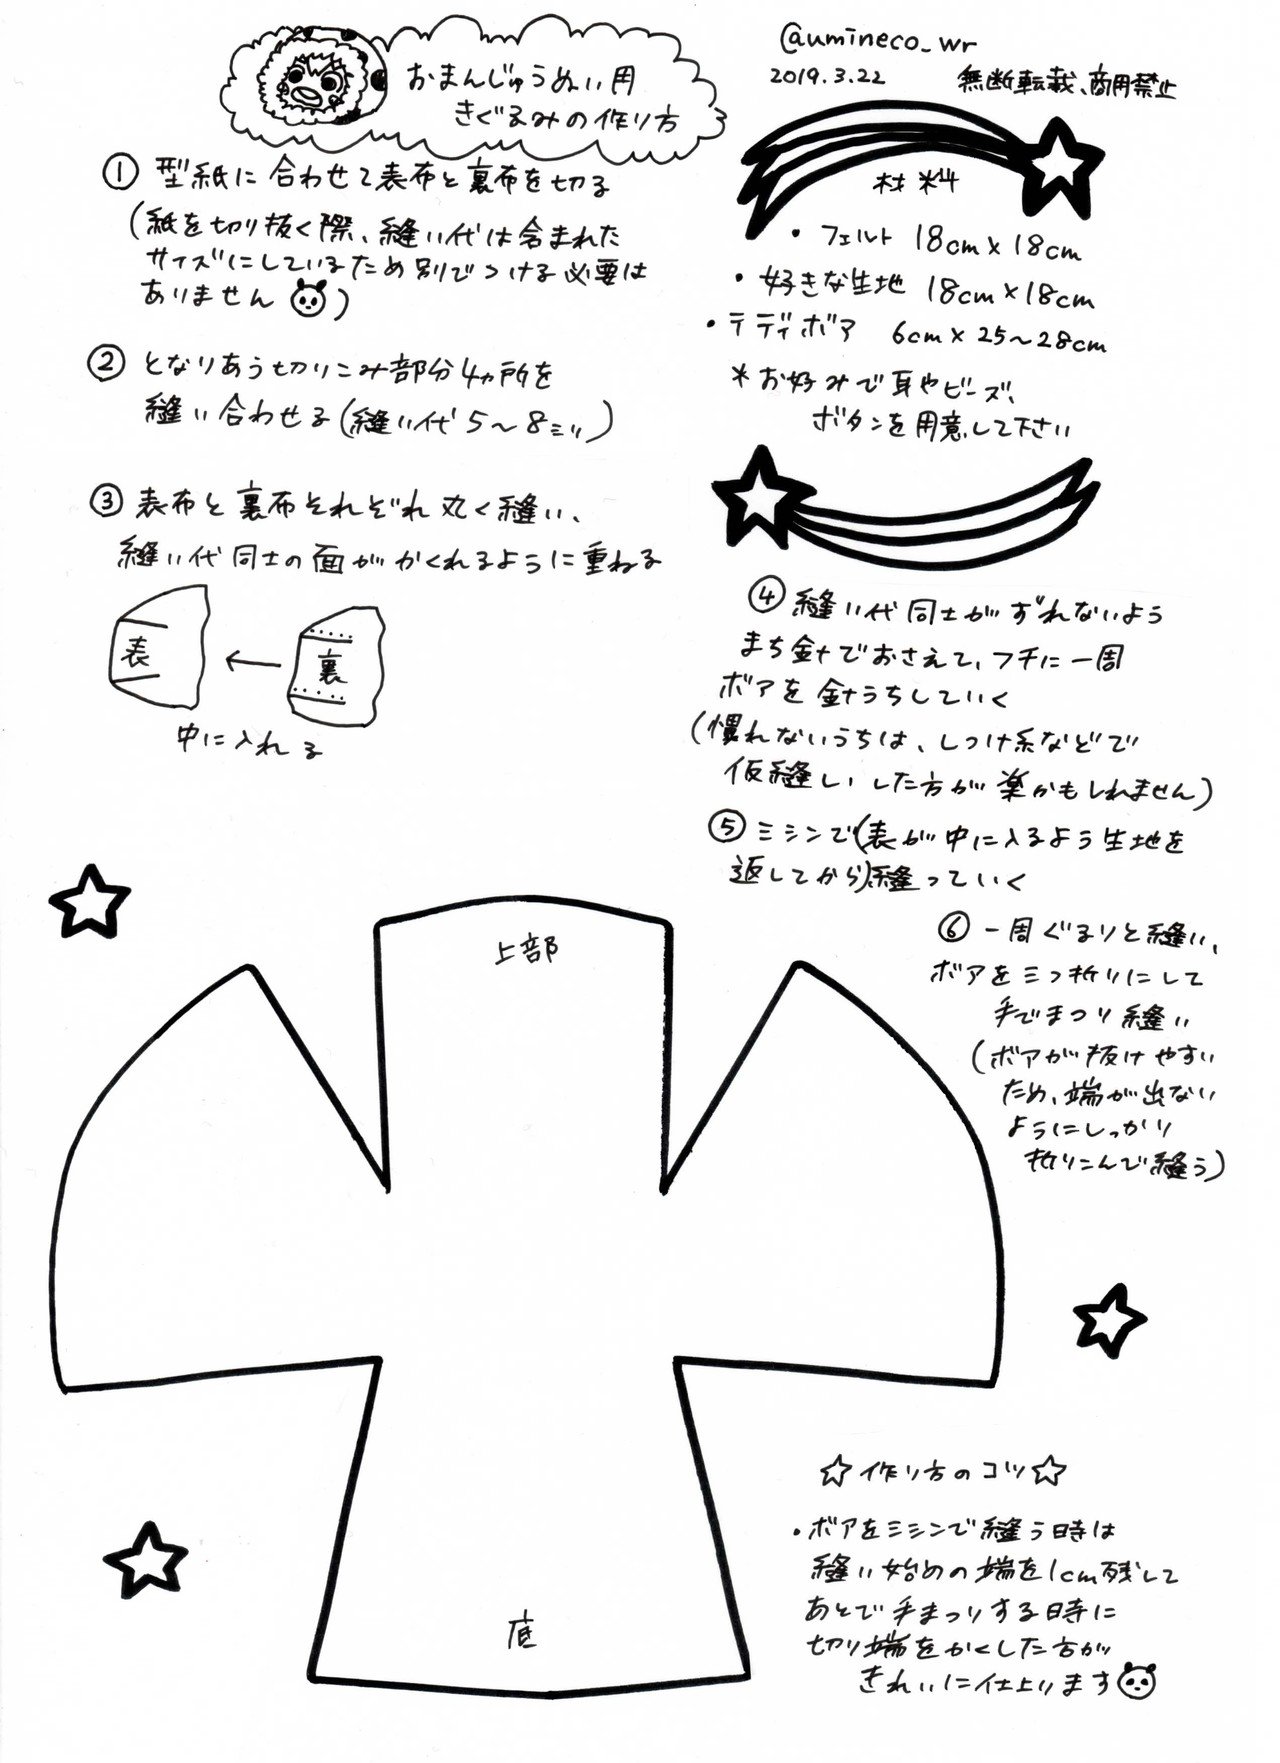 おまんじゅうぬい用
きぐるみの作り方
@umineco_wr
2019.3.22 無断転載、商用禁止
① 型紙に合わせて表布と裏布を切る
(紙を切り抜く際、縫い代は含まれた
サイズにしているため別でつける必要は
ありません)
② となりあう切りこみ部分4ヵ所を
縫い合わせる(縫い代5〜8ミリ)
③ 表布と裏布それぞれ丸く縫い、
縫い代同士の面がかくれるように重ねる
表 ← 裏
中に入れる
材料
・フェルト 18cm×18cm
・好きな生地 18cm×18cm
・テディボア 6cm×25〜28cm
*お好みで耳やビーズ、
ボタンを用意して下さい
④ 縫い代同士がずれないよう
まち針でおさえて、フチに一周
ボアを針うちしていく
(慣れないうちは、しつけ糸などで
仮縫いした方が楽かもしれません)
⑤ ミシンで(表が中に入るよう生地を
返してから)縫っていく
⑥ 一周ぐるりと縫い、
ボアを三つ折りにして
手でまつり縫い
(ボアが抜けやすい
ため、端が出ない
ようにしっかり
折りこんで縫う)
上部
底
☆作り方のコツ☆
・ボアをミシンで縫う時は
縫い始めの端を1cm残して
あとで手まつりする時に
切り端をかくした方が
きれいに仕上ります